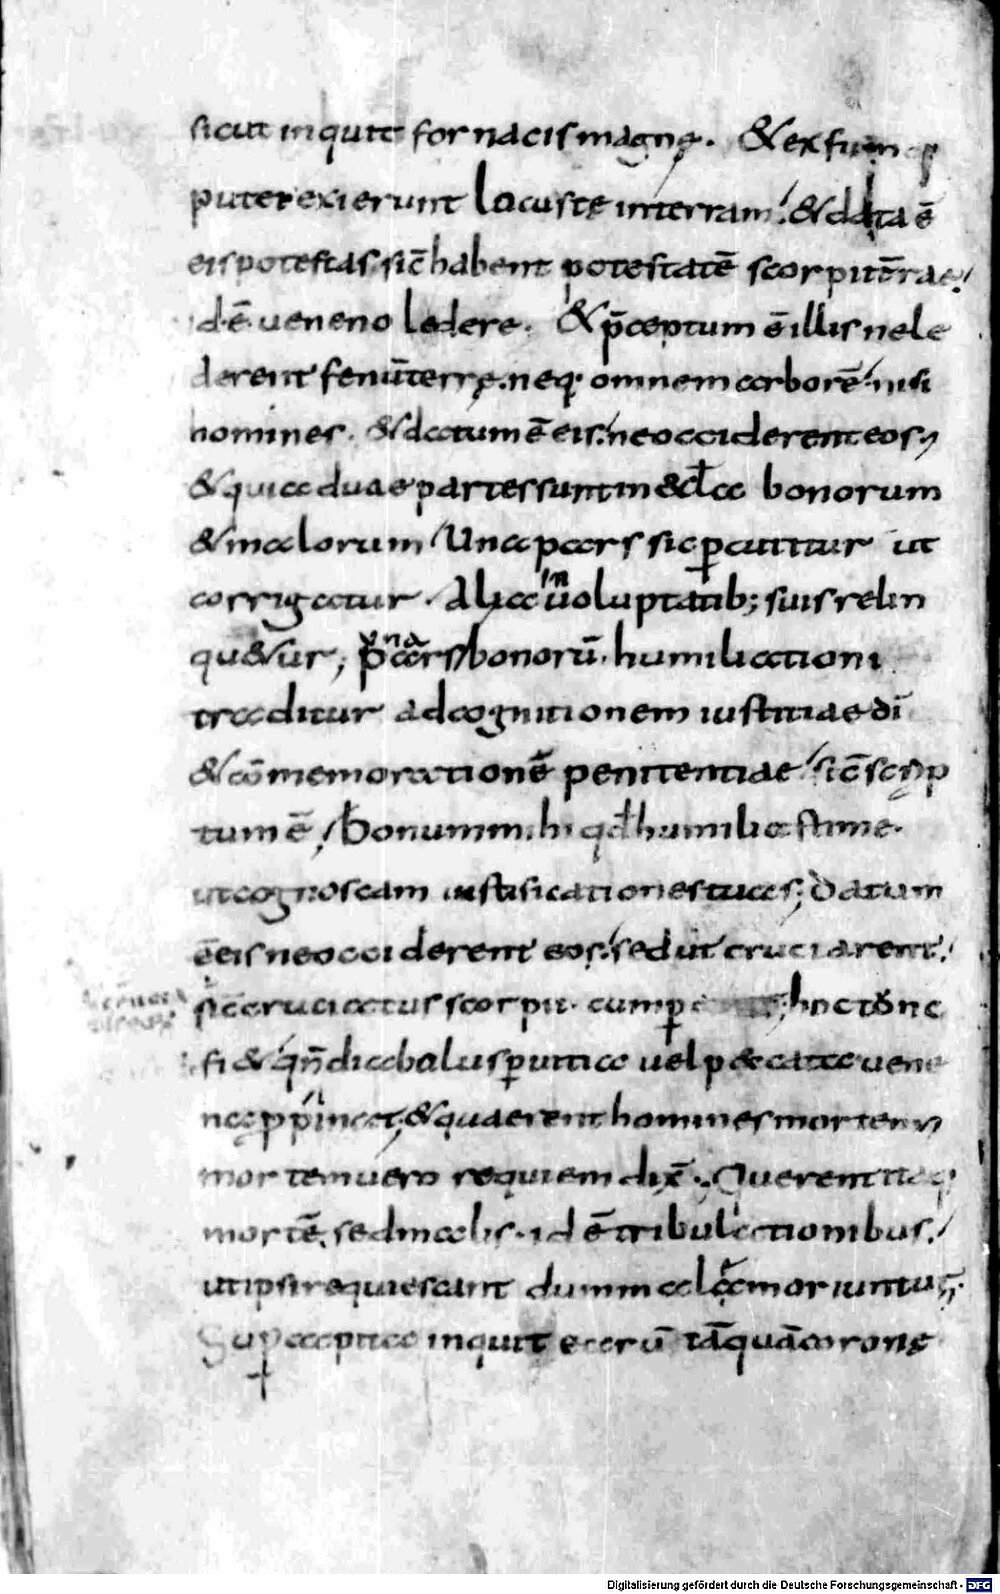 sicut inquit fornacis magnę. & ex fum
putei exierunt locustę in terram. & data ē
eis potestas sic̄ habent potestatē scorpii t̄rae.
id·ē· ueneno ledere. & p̄ceptum ē illis ne le
derent fenū terrę. neq; omnem arborē. nisi
homines. & datum ē eis. ne occiderent eos
& quia duae partes sunt in bonorum
& malorum Una pars sic p̱cutitur ut
corrigatur. Alia in uoluptatib; suis relin
qu&ur; una pars bonorū. humiliationi
traditur ad cognitionem iustitiae dī
& cōmemorationē penitentiae sic̄ scrip
tum ē, Bonum mihi qđ humiliasti me.
ut cognoscam iustificationes tuas; Datum
ē eis ne occiderent eos. sed ut cruciarent.
sic̄ cruciatus scorpii. cum hoc tōnc
fi& qn̄ diabalus p̱ uitia uel peccata uene
na pp̄inat, & quaerent homines mortem
mortem uero requiem dix̄. Querent itaq;
mortē, sed malis. id ē tribulationibus.
ut ipsi requiescant dum mala moriuntur;
Sup̱ capita inquit earū tāquā coronę
Digitalisierung gefördert durch die Deutsche Forschungsgemeinschaft - DFG